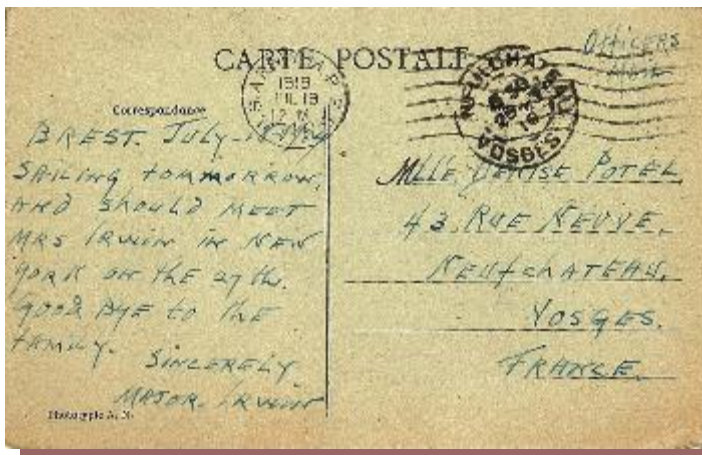 CARTE POSTALE
OFFICERS
MAIL
Correspondance
1919
JUL 18
12 M
NEUFCHATEAU
VOSGES
BREST. JULY
SAILING TOMMORROW,
AND SHOULD MEET
MRS IRWIN IN NEW
YORK ON THE 27th.
GOOD BYE TO THE
FAMILY.
SINCERELY
MAJOR. IRWIN
MLLE. DENISE POTEL,
43. RUE NEUVE,
NEUFCHATEAU,
VOSGES.
FRANCE.
Phototypie A. N.